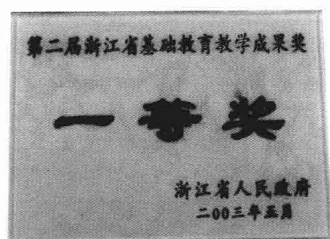 第二届浙江省基础教育教学成果奖
一等奖
浙江省人民政府
二00三年五月